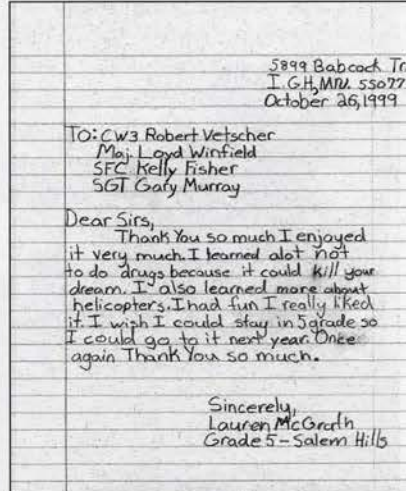 5899 Babcock Tr.
I.G.H, MN. 55077
October 26, 1999
TO: CW3 Robert Vetscher
Maj. Loyd Winfield
SFC Kelly Fisher
SGT Gary Murray
Dear Sirs,
Thank You so much I enjoyed
it very much. I learned alot not
to do drugs because it could kill your
dream. I also learned more about
helicopters. I had fun I really liked
it. I wish I could stay in 5 grade so
I could go to it next year. Once
again Thank You so much.
Sincerely,
Lauren McGrath
Grade 5-Salem Hills